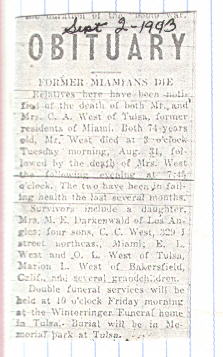 Sept 2-1943
OBITUARY
FORMER MIAMIANS DIE
Relatives here have been noti-
fied of the death of both Mr. and
Mrs. C. A. West of Tulsa, former
residents of Miami. Both 74 years
old, Mr. West died at 3 o'clock
Tuesday morning, Aug. 31, fol-
lowed by the death of Mrs. West
the following evening at 7:45
o'clock. The two have been in fail-
ing health the last several months.
Survivors include a daughter,
Mrs. M. E. Darkenwald of Los An-
gles; four sons, C. C. West, 329 I
street northeast, Miami, E. L.
West and O. L. West of Tulsa,
Marion L. West of Bakersfield,
Calif., and several grandchildren.
Double funeral services will be
held at 10 o'clock Friday morning
at the Winterringer Funeral home
in Tulsa. Burial will be in Me-
morial park at Tulsa.